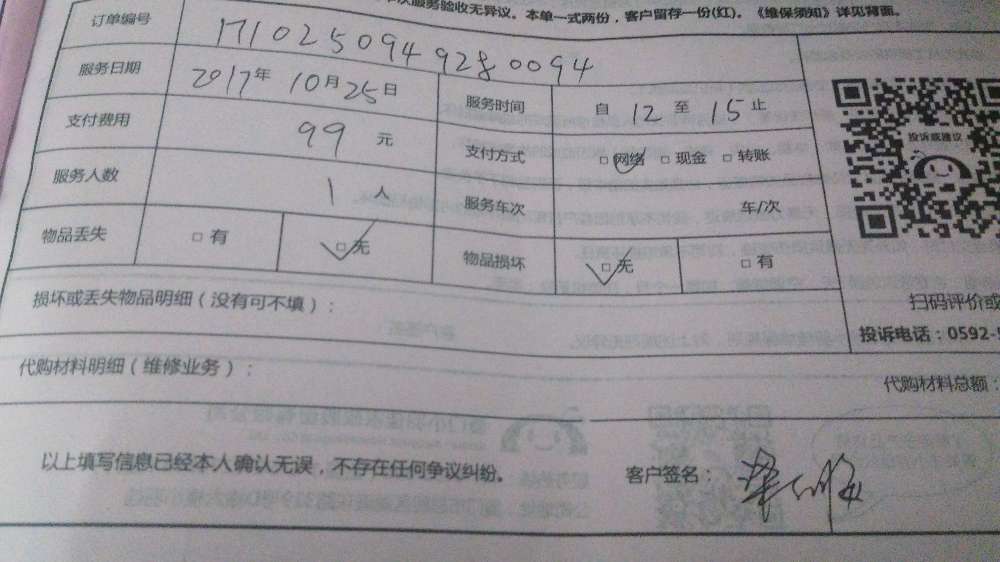 次服务验收无异议。本单一式两份，客户留存一份(红)。《维保须知》详见背面。
订单编号 1710250949280094
服务日期 2017年10月25日 服务时间 自12至15止
支付费用 99元 支付方式 □网络 □现金 □转账
服务人数 1人 服务车次 车/次
物品丢失 □有 □无 物品损坏 □无 □有
投诉或建议
损坏或丢失物品明细（没有可不填）：
扫码评价或
投诉电话：0592-
代购材料明细（维修业务）：
代购材料总额：
以上填写信息已经本人确认无误，不存在任何争议纠纷。 客户签名：